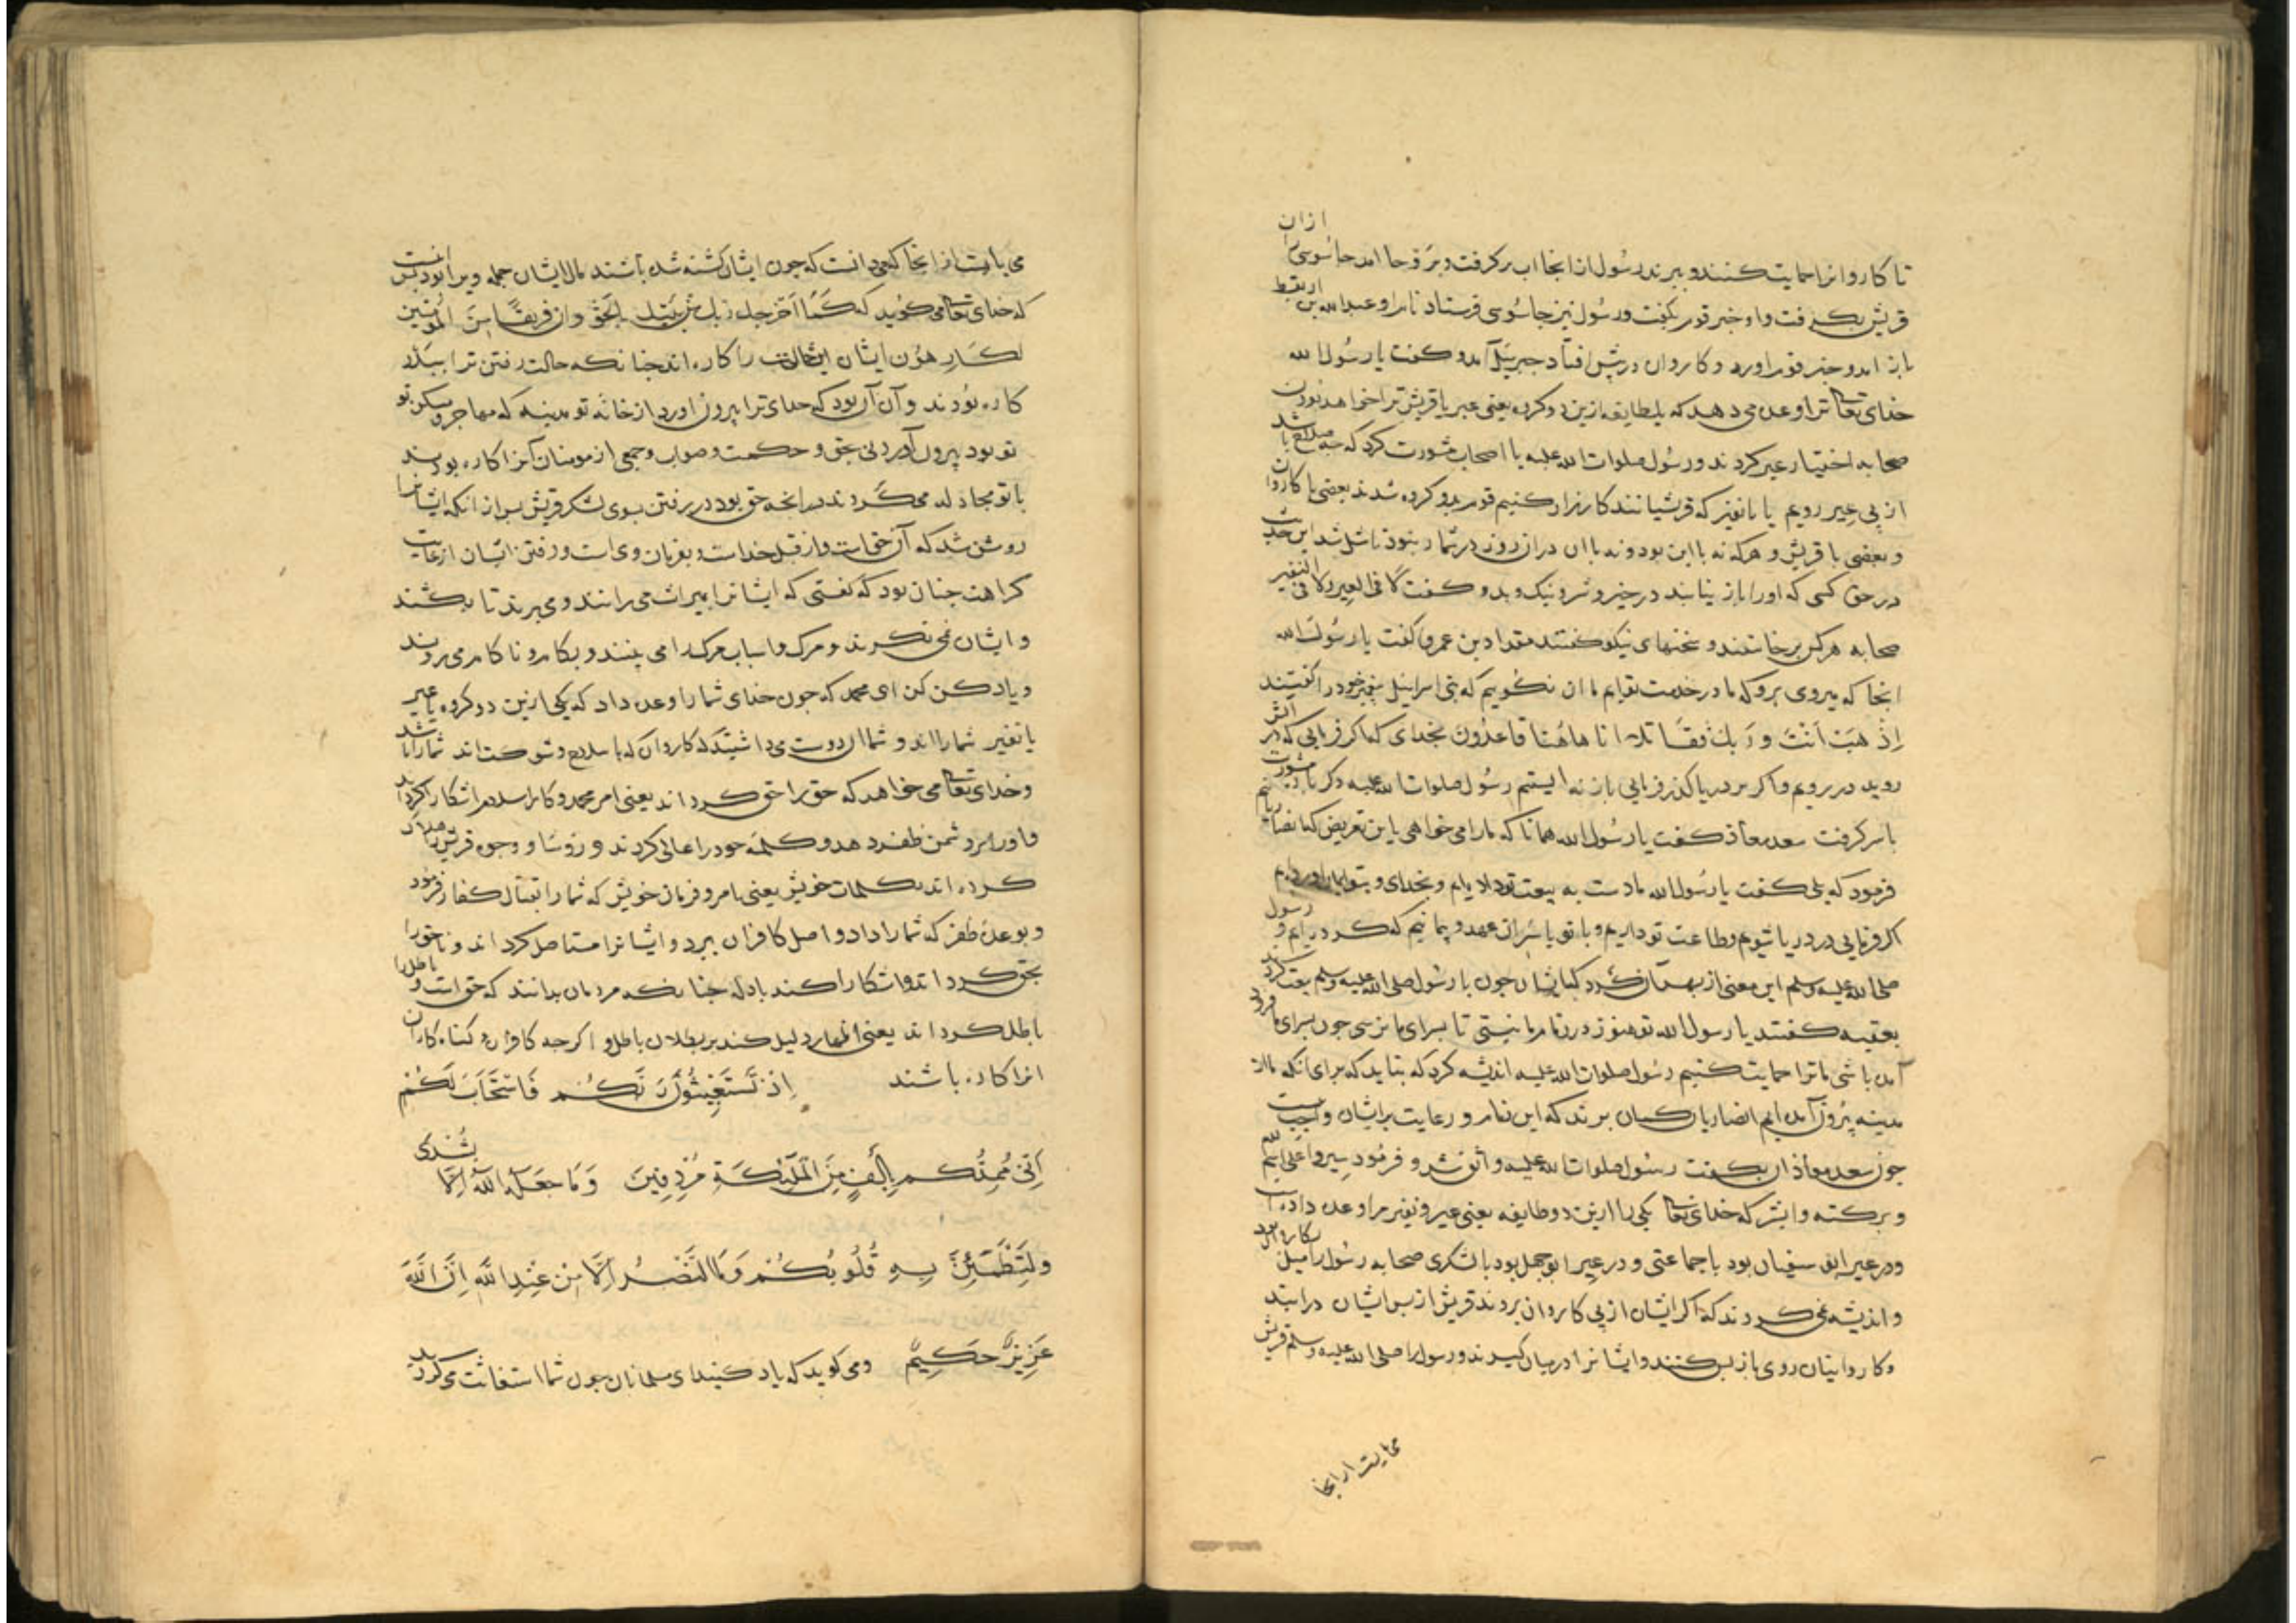 تا کاروانرا حمایت کنند و ببرند رسول از انجا اب برکرفت و برفوحا امد جاسوسی را ازان
قریش بکرفت واو خبر قوم بکفت ورسول نیز جاسوسی فرستاد نام او عبدالله بن اریقط
باز امد و خبر قوم اورد و کاروان درپیش افتاد جبرییل آمد و کفت یا رسول الله
خدای تعالی ترا وعده می دهد که یک طایفه ازین دو کروه یعنی عیر یا قریش ترا خواهد بودن
صحابه اختیار عیر کردند ورسول صلوات الله علیه با اصحاب مشورت کرد که چه صلاح باشد
از پی عیر رویم یا با نفیر که قریشیانند کارزار کنیم قوم بدو کروه شدند بعضی با کاروان
و بعضی با قریش و هرکه نه با این بود و نه با ان دران روز در شمار نبود تا مثل شد این حدیث
در حق کسی که اورا باز نیابند در خیر و شر و نیک و بد و کفت لا فی العیر ولا فی النفیر
صحابه هرکس برخاستند و سخنهای نیکو کفتند مقداد بن عمرو کفت یا رسول الله
انجا که میروی برو که ما در خدمت توایم ما ان نکوییم که بنی اسراییل پیغمبر خود را کفتند
اذهب انت و ربک فقاتلا انا هاهنا قاعدون بخدای که اکر فرمایی که در آتش
روید در رویم واکر بر دریا کذر فرمایی باز نه ایستیم رسول صلوات الله علیه دکر باره مشورت
باسر کرفت سعد معاذ کفت یا رسول الله همانا که مارا می خواهی باین تعریض که انصاریانیم
فرمود که بلی کفت یا رسول الله ما دست به بیعت تو داده ایم و بخدای و بتو ایمان اورده ایم
اکر فرمایی در دریا شویم وطاعت تو داریم و با تو باسر ان عهد و پیمانیم که کرده ایم و رسول
صلی الله علیه وسلم این معنی از بهر آن کرد که ایشان چون با رسول صلی الله علیه وسلم بیعت کردند
بعقبه کفتند یا رسول الله تو هنوز در ذمام ما نیستی تا بسرای ما نرسی چون بسرای ما فرود
آمده باشی ما ترا حمایت کنیم رسول صلوات الله علیه اندیشه کرد که نباید که برای انکه ما از
مدینه بیرون آمده ایم انصاریان کمان برند که این ذمام و رعایت بر ایشان واجب نیست
چون سعد معاذ ان بکفت رسول صلوات الله علیه واثق شد و فرمود سیروا علی اسم الله
و برکته وابشر که خدای تعالی یکی را ازین دو طایفه یعنی عیر و نفیر مرا وعده داده است
ودر عیر ابو سفیان بود با جماعتی و در عیر ابو جهل بود با لشکری صحابه رسول را میل بکاروان بود
و اندیشه نمی کردند که اکر ایشان از پی کاروان بروند قریش از پس ایشان درایند
وکاروانیان روی باز پس کنند وایشانرا درمیان کیرند و رسول را صلی الله علیه وسلم قریش
می بایست از انجا
می بایست از انجا که می دانست که چون ایشان کشته شده باشند مال ایشان جمله ویرا بود غنیمت پس
که خدای تعالی می کوید که کما اخرجک ربک من بیتک بالحق وان فریقا من المؤمنین
لکارهون ایشان این حالت را کاره اند چنانکه حالت رفتن ترا ببدر
کاره بودند و آن آن بود که خدای ترا بیرون اورد از خانه تو مدینه که مهاجر و مسکن تو
تو بود بیرون آوردنی بحق و حکمت و صواب وجمعی از مومنان آنرا کاره بودند
با تو مجادله می کردند در انچه حق بود در رفتن بسوی لشکر قریش پس از انکه ایشانرا
روشن شد که آن حق است واز قبل خداست و بفرمان وی است و رفتن ایشان از غایت
کراهت چنان بود که کفتی که ایشانرا بمیراث می رانند و می برند تا بکشند
و ایشان نمی نکرند و مرک واسباب مرک را می بینند و بکام و ناکام می روند
ویاد کن کن ای محمد که چون خدای شما را وعده داد که یکی ازین دو کروه یا عیر
یا نفیر شما را اند و شما ان دوست می داشتید که کاروان که با سلاح و شوکت اند شما را باشد
وخدای تعالی می خواهد که حق را حق کرداند یعنی امر محمد و کار اسلام اشکارا کرداند
واورا بر دشمن ظفر دهد و کلمه خود را عالی کرداند و رؤسا و وجوه قریش را هلاک
کرداند بکلمات خویش یعنی بامر و فرمان خویش که شما را بقتال کفار فرمود
وبوعده ظفر که شما را داد و اصل کافران ببرد و ایشانرا مستاصل کرداند و تا حق را
بحق کرداند و اشکارا کند بادله چنانکه مردمان بدانند که حق است و باطل را
باطل کرداند یعنی اظهار دلیل کند بر بطلان باطل و اکرچه کافران و کناه کاران
انرا کاره باشند اِذْ تَسْتَغِيثُونَ رَبَّكُمْ فَاسْتَجَابَ لَكُمْ
اَنِّي مُمِدُّكُم بِاَلْفٍ مِنَ الْمَلٰئِكَةِ مُرْدِفِينَ وَمَا جَعَلَهُ اللَّهُ اِلَّا بُشْرَى
وَلِتَطْمَئِنَّ بِهِ قُلُوبُكُمْ وَمَا النَّصْرُ اِلَّا مِنْ عِنْدِ اللَّهِ اِنَّ اللَّهَ
عَزِيزٌ حَكِيمٌ ومی کوید که یاد کنید ای مسلمانان چون شما استغاثت می کردید